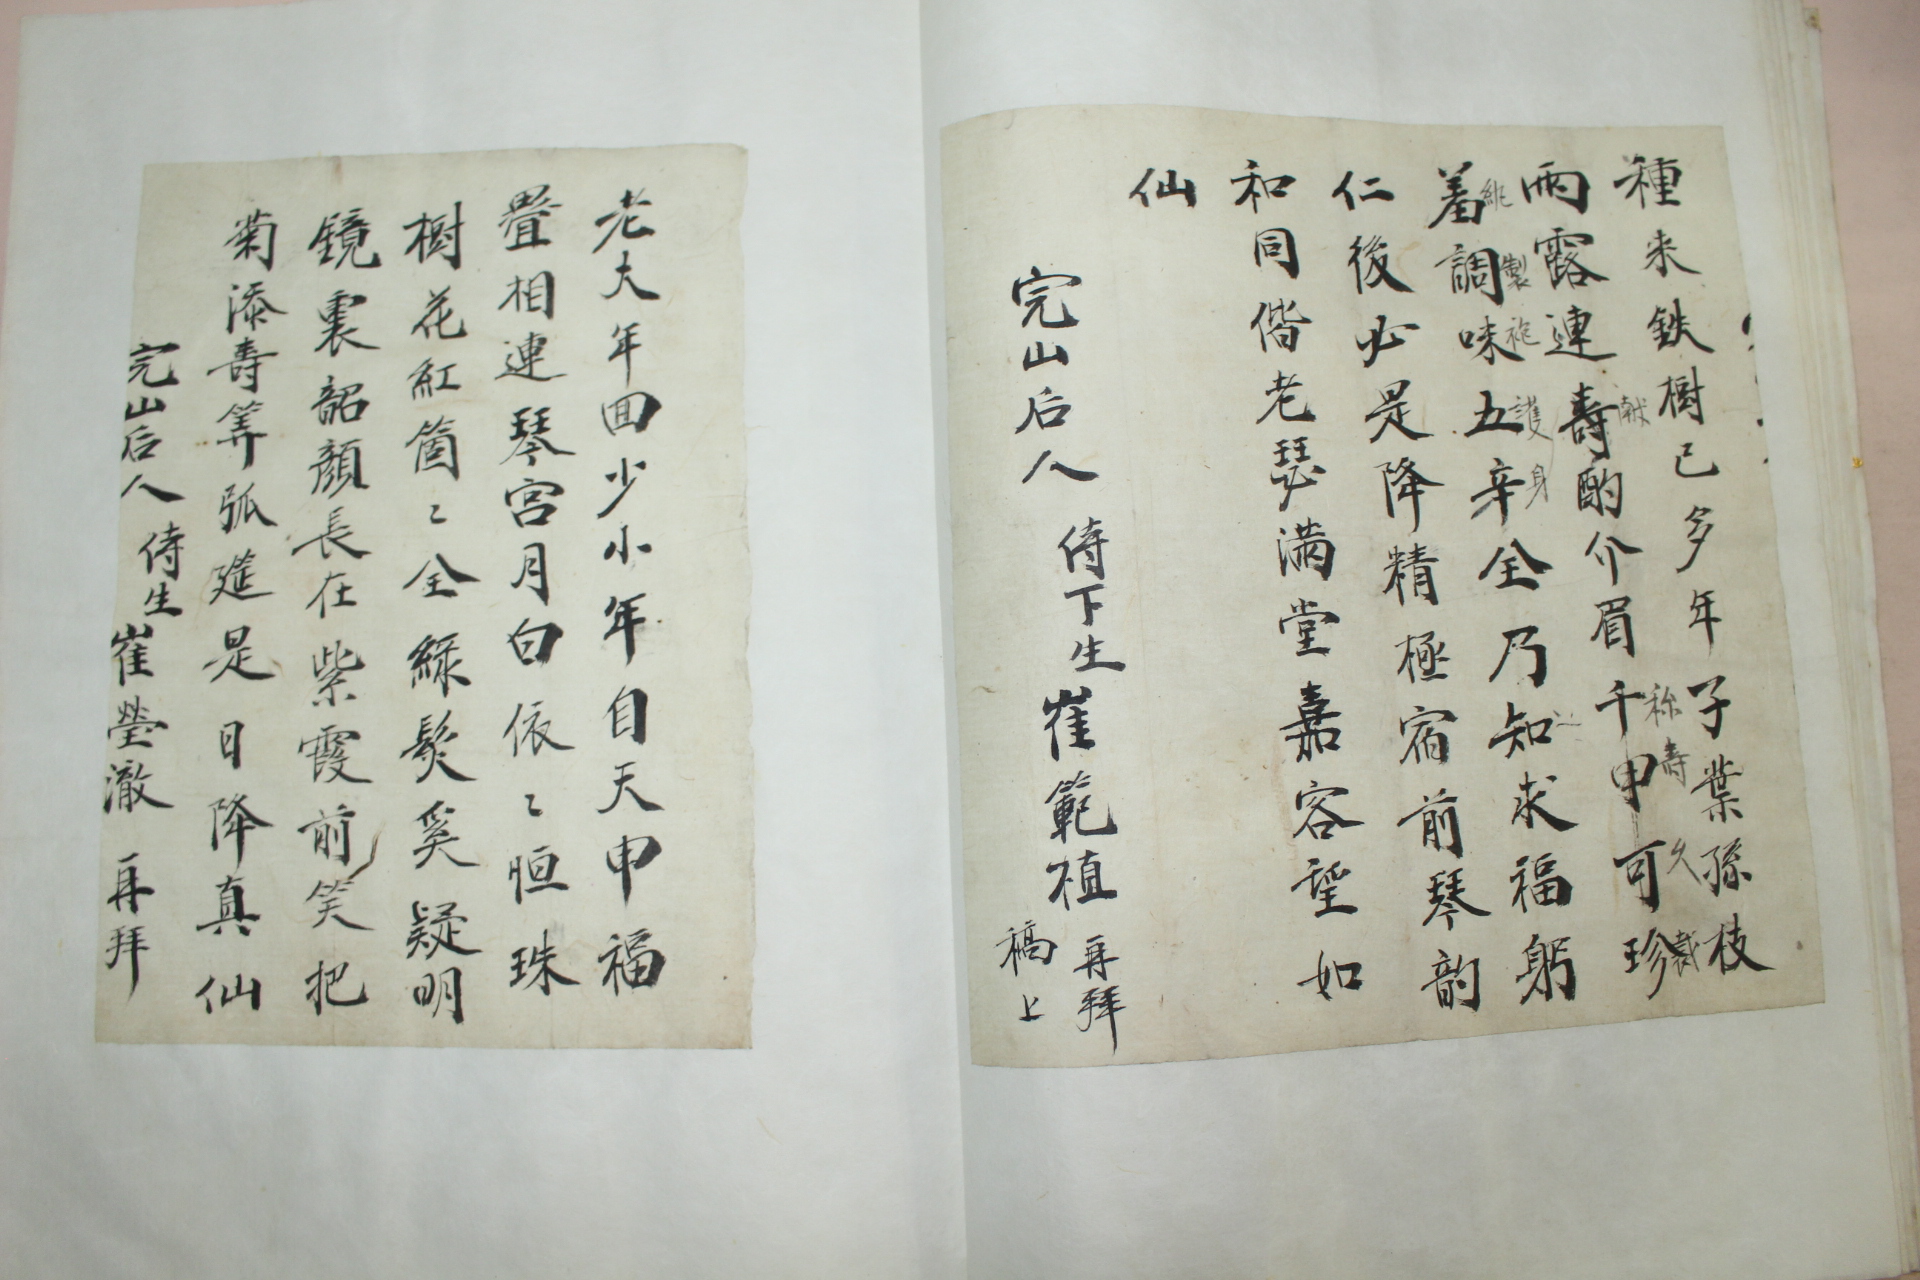 種来鉄樹已多年子葉孫枝
雨露連壽酌介眉千甲可珍
献
称壽久裁
羞調味五辛全乃知求福躬
製袍護身
仁後必是降精極宿前琴韵
和同偕老瑟满堂嘉容望如
仙
完山后人 侍下生 崔範植 再拜
稿上
老大年回少小年自天申福
疊相連琴宮月白依〻恒珠
樹花紅箇〻全綠髮奚疑明
鏡裏韶顔長在紫霞前笑把
菊添壽筭弧筵是日降真仙
完山后人 侍生 崔瑩澈 再拜